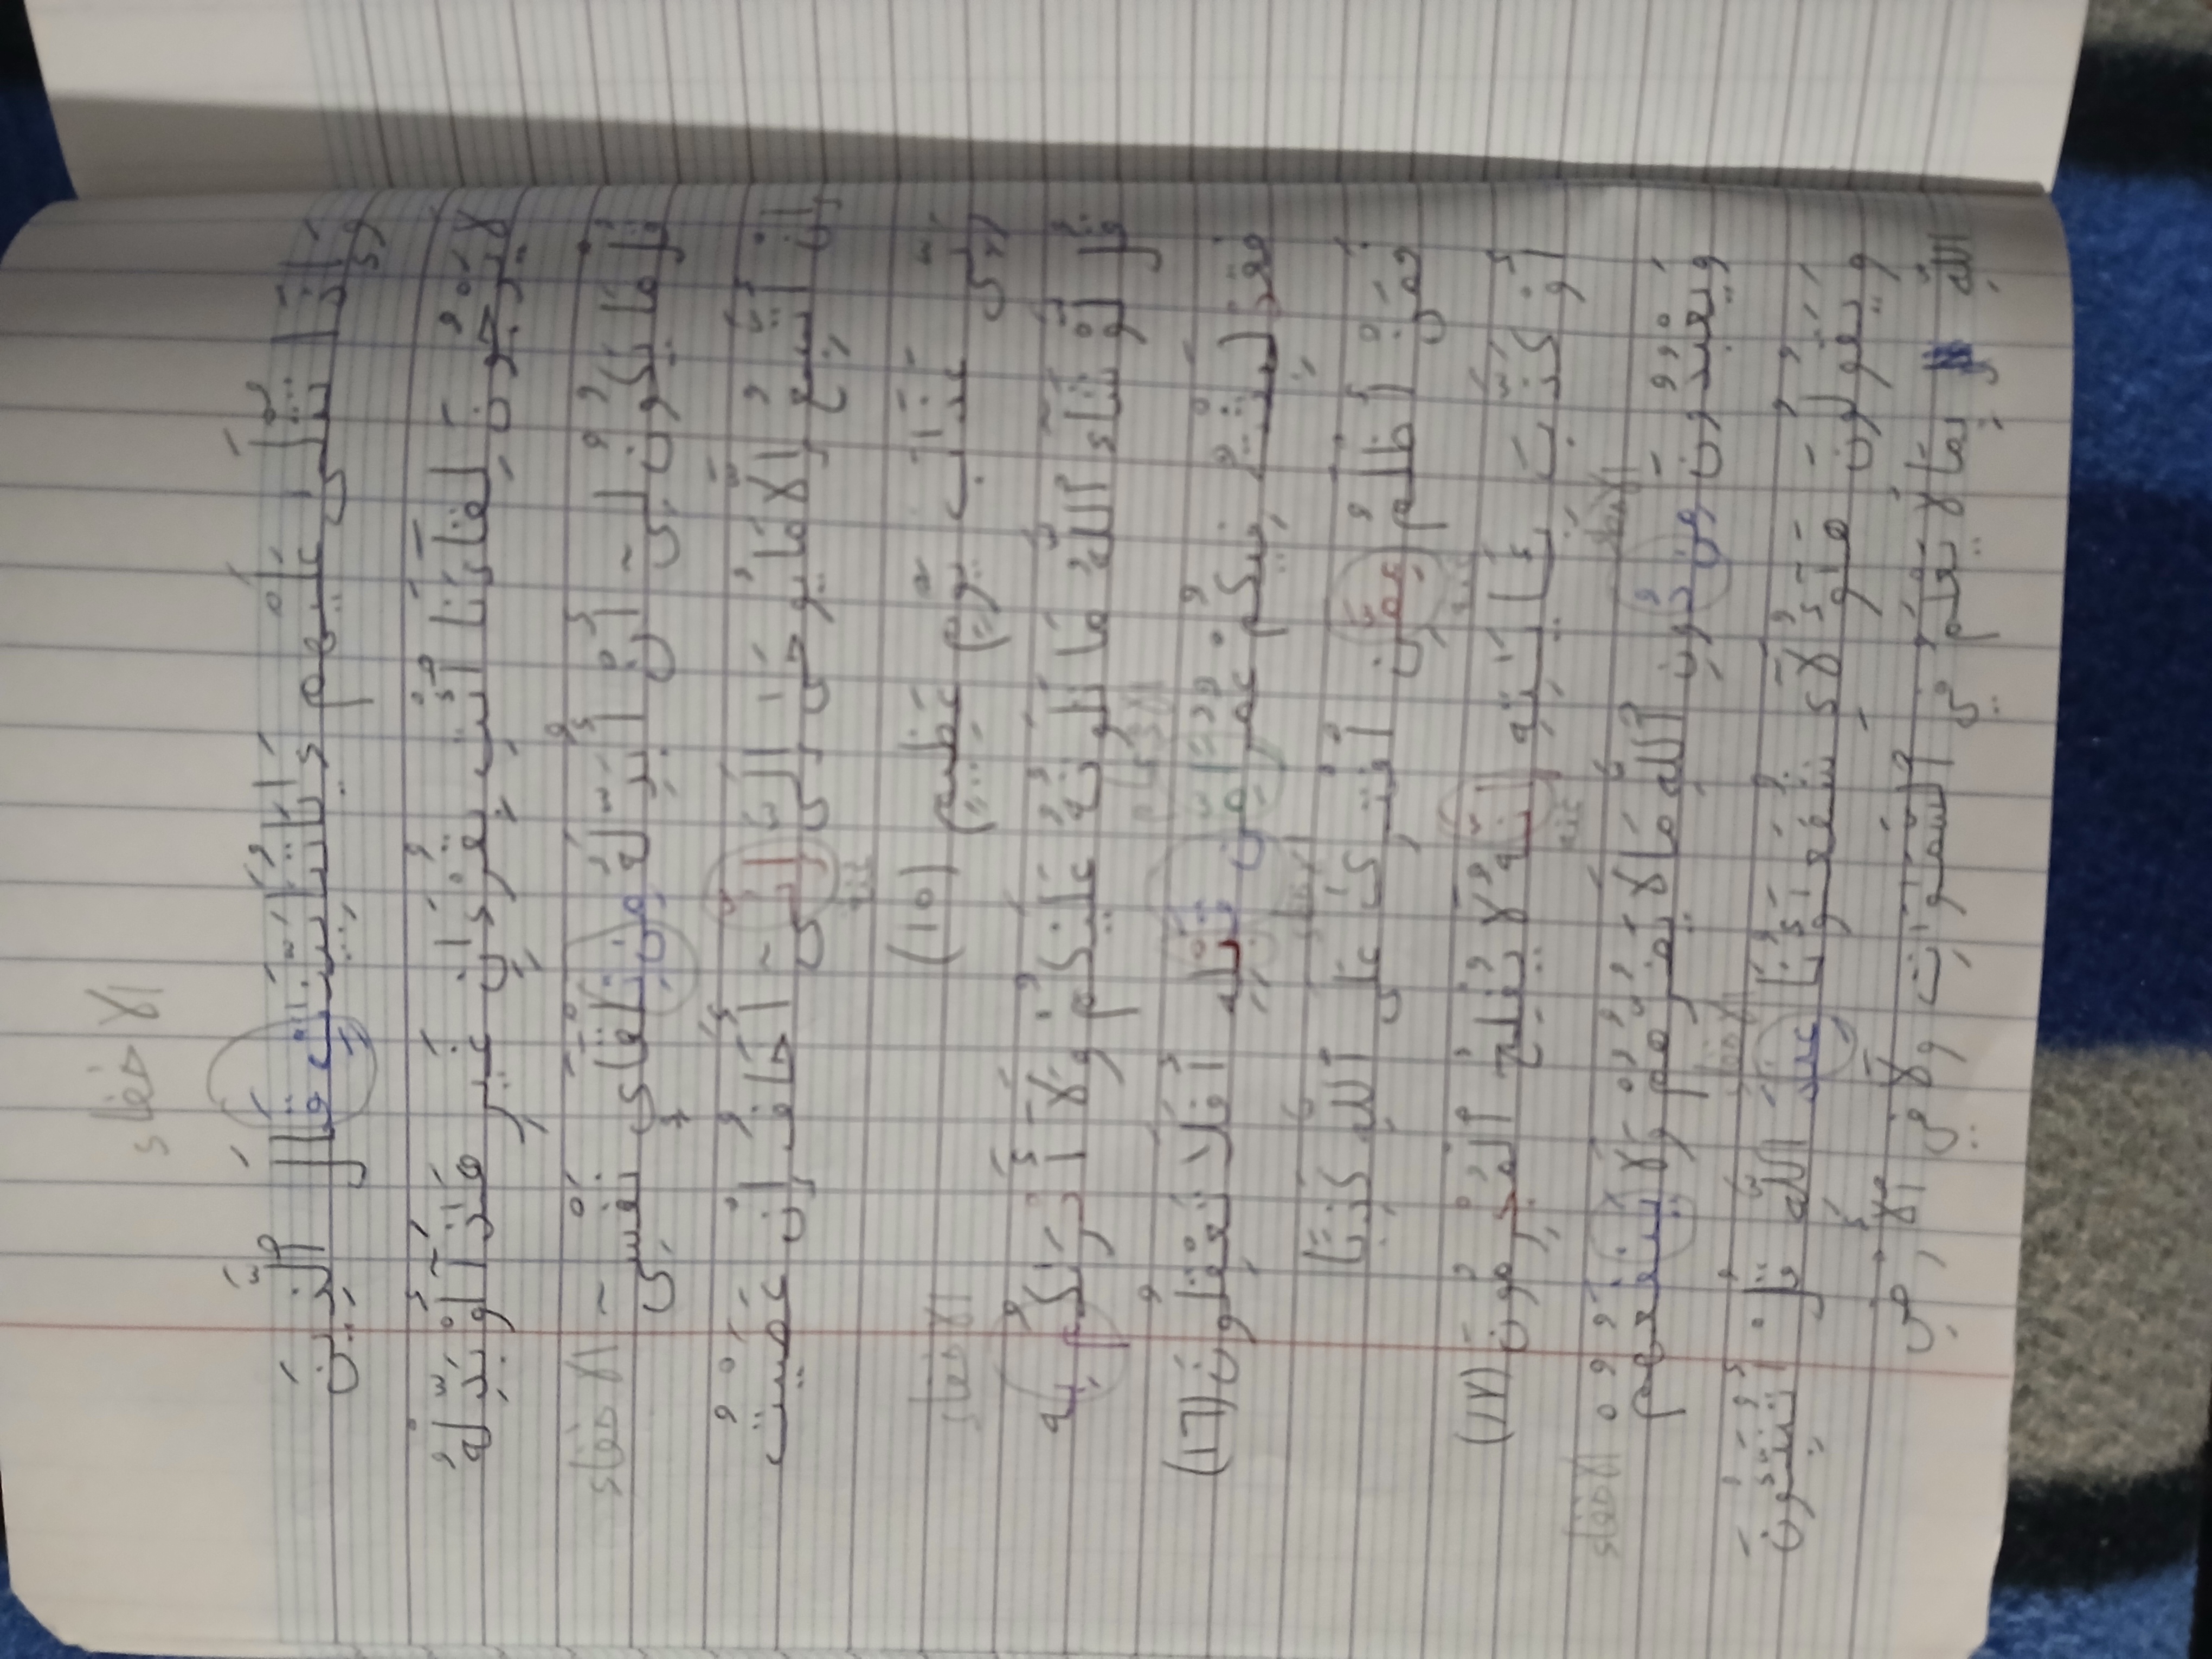 الاخفاء
وَإِذَا تُتْلَىٰ عَلَيْهِمْ ءَايَاتُنَا بَيِّنَاتٍ قَالَ الَّذِينَ
لَا يَرْجُونَ لِقَآءَنَا ائْتِ بِقُرْءَانٍ غَيْرِ هَٰذَآ أَوْ بَدِّلْهُ
قُلْ مَا يَكُونُ لِىٓ أَنْ أُبَدِّلَهُ مِن تِلْقَآئِ نَفْسِىٓ
الاخفاء
إِنْ أَتَّبِعُ إِلَّا مَا يُوحَىٰ إِلَىَّ إِنِّىٓ أَخَافُ إِنْ عَصَيْتُ
غنة
رَبِّى عَذَابَ يَوْمٍ عَظِيمٍ (15)
الاخفاء
قُل لَّوْ شَآءَ اللَّهُ مَا تَلَوْتُهُ عَلَيْكُمْ وَلَآ أَدْرَاكُم بِهِ
الادغام
فَقَدْ لَبِثْتُ فِيكُمْ عُمُرًا مِّن قَبْلِهِ أَفَلَا تَعْقِلُونَ (16)
الاخفاء
فَمَنْ أَظْلَمُ مِمَّنِ افْتَرَىٰ عَلَى اللَّهِ كَذِبًا
غنة
أَوْ كَذَّبَ بِـَٔايَاتِهِ إِنَّهُ لَا يُفْلِحُ الْمُجْرِمُونَ (17)
غنة
الاخفاء
وَيَعْبُدُونَ مِن دُونِ اللَّهِ مَا لَا يَضُرُّهُمْ وَلَا يَنفَعُهُمْ
الاخفاء
الاخفاء
وَيَقُولُونَ هَٰٓؤُلَآءِ شُفَعَٰٓؤُنَا عِندَ اللَّهِ قُلْ أَتُنَبِّـُٔونَ
اللَّهَ بِمَا لَا يَعْلَمُ فِى السَّمَوَاتِ وَلَا فِى الْأَرْضِ